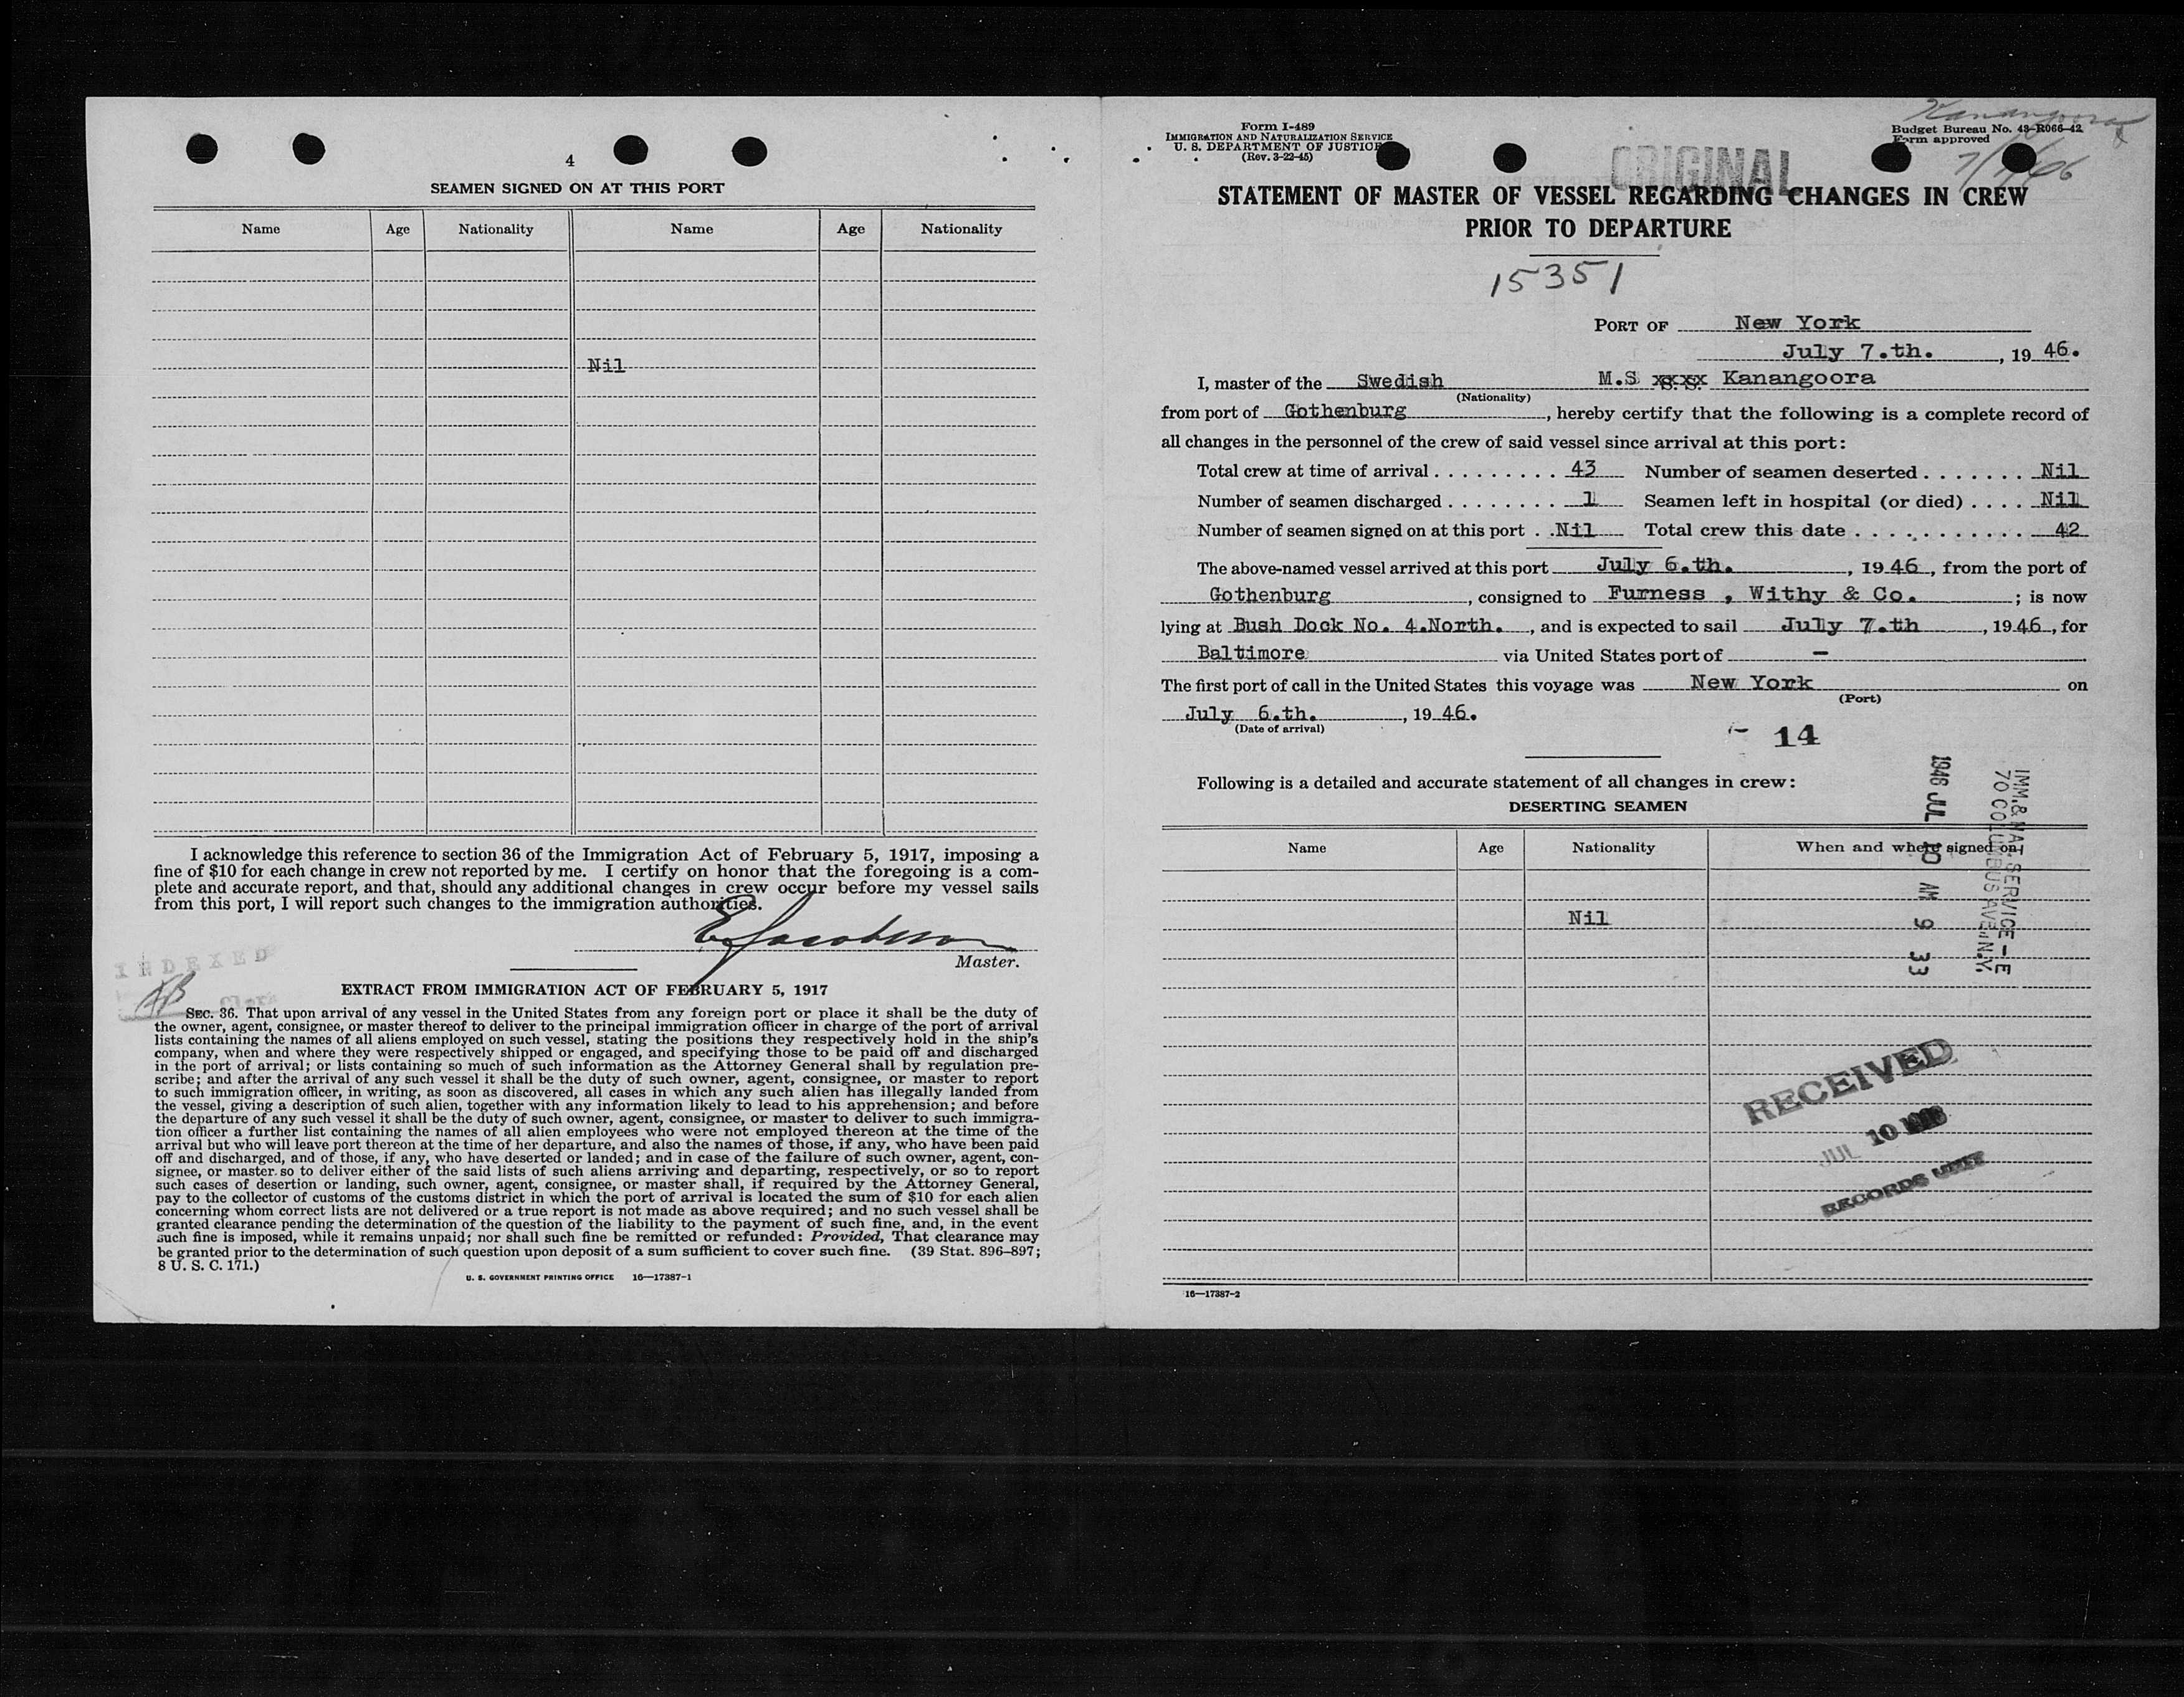 4
SEAMEN SIGNED ON AT THIS PORT
Name Age Nationality Name Age Nationality
Nil
I acknowledge this reference to section 36 of the Immigration Act of February 5, 1917, imposing a
fine of $10 for each change in crew not reported by me. I certify on honor that the foregoing is a com-
plete and accurate report, and that, should any additional changes in crew occur before my vessel sails
from this port, I will report such changes to the immigration authorities.
E Jacobsson
Master.
INDEXED
Clerk
EXTRACT FROM IMMIGRATION ACT OF FEBRUARY 5, 1917
SEC. 36. That upon arrival of any vessel in the United States from any foreign port or place it shall be the duty of
the owner, agent, consignee, or master thereof to deliver to the principal immigration officer in charge of the port of arrival
lists containing the names of all aliens employed on such vessel, stating the positions they respectively hold in the ship's
company, when and where they were respectively shipped or engaged, and specifying those to be paid off and discharged
in the port of arrival; or lists containing so much of such information as the Attorney General shall by regulation pre-
scribe; and after the arrival of any such vessel it shall be the duty of such owner, agent, consignee, or master to report
to such immigration officer, in writing, as soon as discovered, all cases in which any such alien has illegally landed from
the vessel, giving a description of such alien, together with any information likely to lead to his apprehension; and before
the departure of any such vessel it shall be the duty of such owner, agent, consignee, or master to deliver to such immigra-
tion officer a further list containing the names of all alien employees who were not employed thereon at the time of the
arrival but who will leave port thereon at the time of her departure, and also the names of those, if any, who have been paid
off and discharged, and of those, if any, who have deserted or landed; and in case of the failure of such owner, agent, con-
signee, or master so to deliver either of the said lists of such aliens arriving and departing, respectively, or so to report
such cases of desertion or landing, such owner, agent, consignee, or master shall, if required by the Attorney General,
pay to the collector of customs of the customs district in which the port of arrival is located the sum of $10 for each alien
concerning whom correct lists are not delivered or a true report is not made as above required; and no such vessel shall be
granted clearance pending the determination of the question of the liability to the payment of such fine, and, in the event
such fine is imposed, while it remains unpaid; nor shall such fine be remitted or refunded: Provided, That clearance may
be granted prior to the determination of such question upon deposit of a sum sufficient to cover such fine. (39 Stat. 896–897;
8 U. S. C. 171.)
U. S. GOVERNMENT PRINTING OFFICE 16—17387-1
Form I-489
IMMIGRATION AND NATURALIZATION SERVICE
U. S. DEPARTMENT OF JUSTICE
(Rev. 3-22-45)
Kanangoora
Budget Bureau No. 43-R066-42
Form approved
ORIGINAL
STATEMENT OF MASTER OF VESSEL REGARDING CHANGES IN CREW
PRIOR TO DEPARTURE
15351
PORT OF New York
July 7.th. , 19 46.
I, master of the Swedish M.S xxxx Kanangoora
(Nationality)
from port of Gothenburg , hereby certify that the following is a complete record of
all changes in the personnel of the crew of said vessel since arrival at this port:
Total crew at time of arrival . . . . . . . . . 43 Number of seamen deserted . . . . . . . Nil
Number of seamen discharged . . . . . . . . 1 Seamen left in hospital (or died) . . . . Nil
Number of seamen signed on at this port . . Nil Total crew this date . . . . . . . . . . . 42
The above-named vessel arrived at this port July 6.th. , 19 46 , from the port of
Gothenburg , consigned to Furness , Withy & Co. ; is now
lying at Bush Dock No. 4.North. , and is expected to sail July 7.th , 19 46 , for
Baltimore via United States port of –
The first port of call in the United States this voyage was New York on
(Port)
July 6.th. , 19 46.
(Date of arrival)
14
Following is a detailed and accurate statement of all changes in crew:
DESERTING SEAMEN
Name Age Nationality When and where signed on
Nil
IMM. & NAT. SERVICE – E
70 COLUMBUS AVE., N.Y.
1946 JUL 10 AM 9 33
RECEIVED
JUL 10 1946
RECORDS UNIT
16—17387-2